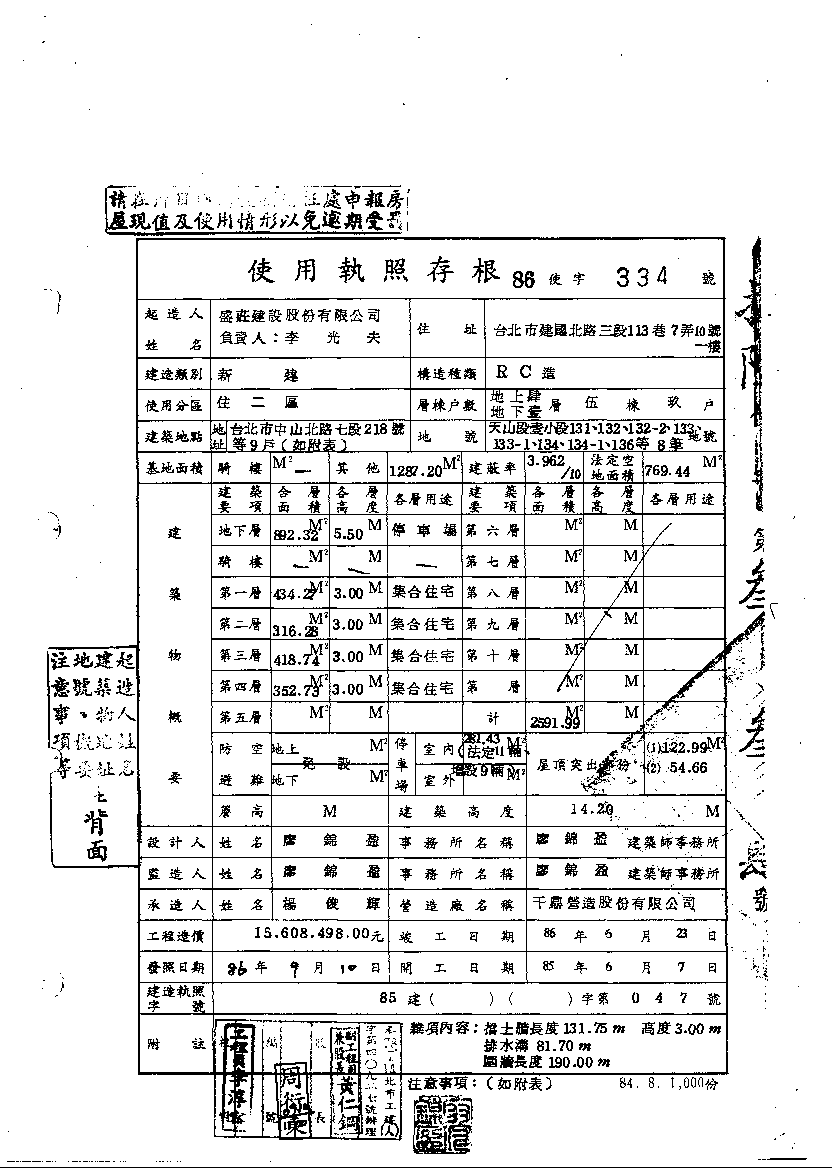 處申報房
屋現值及使用情形以免逾期受罰
使用執照存根 86 使字 334 號
起造人姓名 盛莊建設股份有限公司
負責人：李光夫
住址 台北市建國北路三段113巷7弄10號一樓
建造類別 新建 構造種類 RC造
使用分區 住二區 層棟户數 地上肆層 地下壹層 伍棟玖户
建築地點 地址 台北市中山北路七段218號等9戶（如附表）
地號 天山段壹小段131、132、132-2、133、133-1、134、134-1、136等8筆地號
基地面積 騎樓 M² — 其他 1287.20M² 建蔽率 3.962/10 法定空地面積 769.44 M²
建築物概要
建築要項 各層面積 各層高度 各層用途 建築要項 各層面積 各層高度 各層用途
地下層 892.32 M² 5.50 M 停車場 第六層 M² M
騎樓 — M² — M — 第七層 M² M
第一層 434.27 M² 3.00 M 集合住宅 第八層 M² M
第二層 316.28 3.00 M 集合住宅 第九層 M² M
第三層 418.74 M² 3.00 M 集合住宅 第十層 M² M
第四層 352.73 M² 3.00 M 集合住宅 第層 M² M
第五層 M² M 計 2591.99 M²
防空避難 地上 M² 地下 M² 免設
停車場 室內 281.43 M² （法定11輛 室外 增設9輛） M²
屋頂突出部份 (1)122.99M²
(2) 54.66
層高 M 建築高度 14.20 M
設計人 姓名 廖錦盈 事務所名稱 廖錦盈 建築師事務所
監造人 姓名 廖錦盈 事務所名稱 廖錦盈 建築師事務所
承造人 姓名 楊俊輝 營造廠名稱 千鼎營造股份有限公司
工程造價 15.608.498.00元 竣工日期 86年6月23日
發照日期 86年9月10日 開工日期 85年6月7日
建造執照字號 85建（ ）（ ）字第047號
附註
雜項內容：擋土牆長度131.75m 高度3.00m
排水溝 81.70m
圍牆長度190.00m
注意事項：（如附表） 84.8.1,000份
副工程司兼股長 黃仁鋼
起造人姓名
建築物地址
地號
注意事項等
背面
號